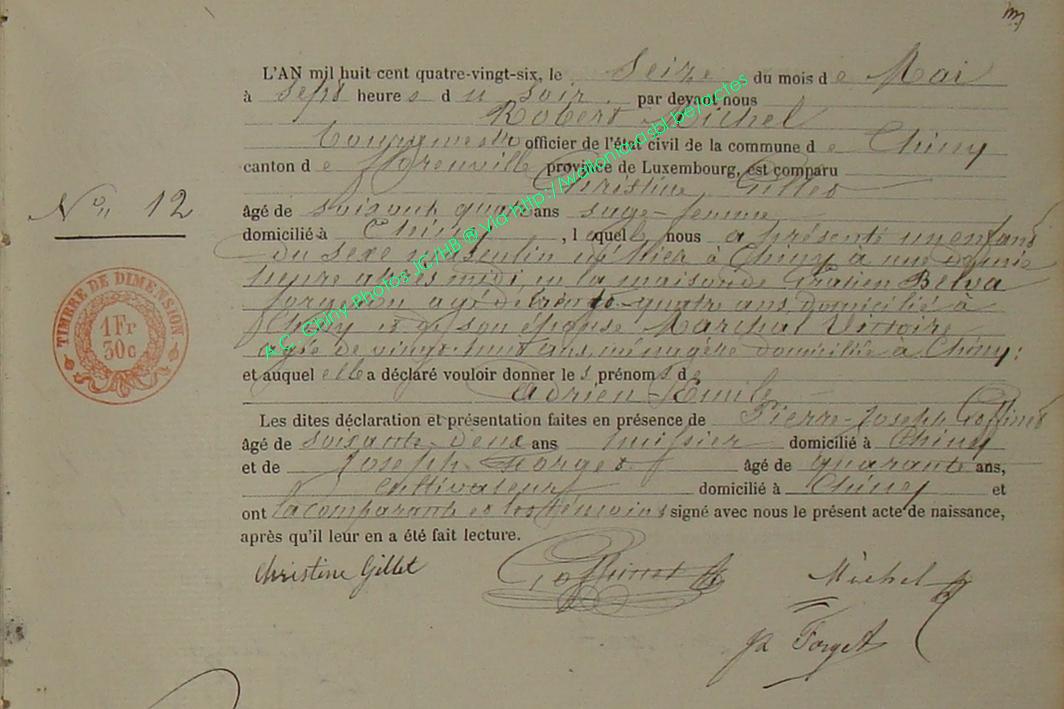 L'AN mil huit cent quatre-vingt-six, le seize du mois de Mai
à sept heures du soir par devant nous
Robert Michel
bourgmestre officier de l'état civil de la commune de Chiny
canton de florenville province de Luxembourg, est comparu
Christine Gillet
âgé de soixante quatre ans sage-femme
domicilié à Chiny, laquelle nous a présenté un enfant
du sexe masculin né hier à Chiny à une demie
heure après midi, en la maison de Gratien Belva
forgeron agé de trente-quatre ans domicilié à
Chiny et de son épouse Marchal Victoire
agée de vingt-huit ans, ménagère domiciliée à Chiny;
et auquel elle a déclaré vouloir donner les prénoms de
Adrien-Emile
Les dites déclaration et présentation faites en présence de Pierre-Joseph Goffinet
âgé de soixante-deux ans huissier domicilié à Chiny
et de Joseph Forget âgé de quarante ans,
cultivateur domicilié à Chiny et
ont la comparante et les témoins signé avec nous le présent acte de naissance,
après qu'il leur en a été fait lecture.
Christine Gillet Goffinet Michel R
Forget
Non 12
TIMBRE DE DIMENSION
1 Fr
30 c
A.C. Chiny Photos JC/HB ® via http://wallonia-asbl.be/actes